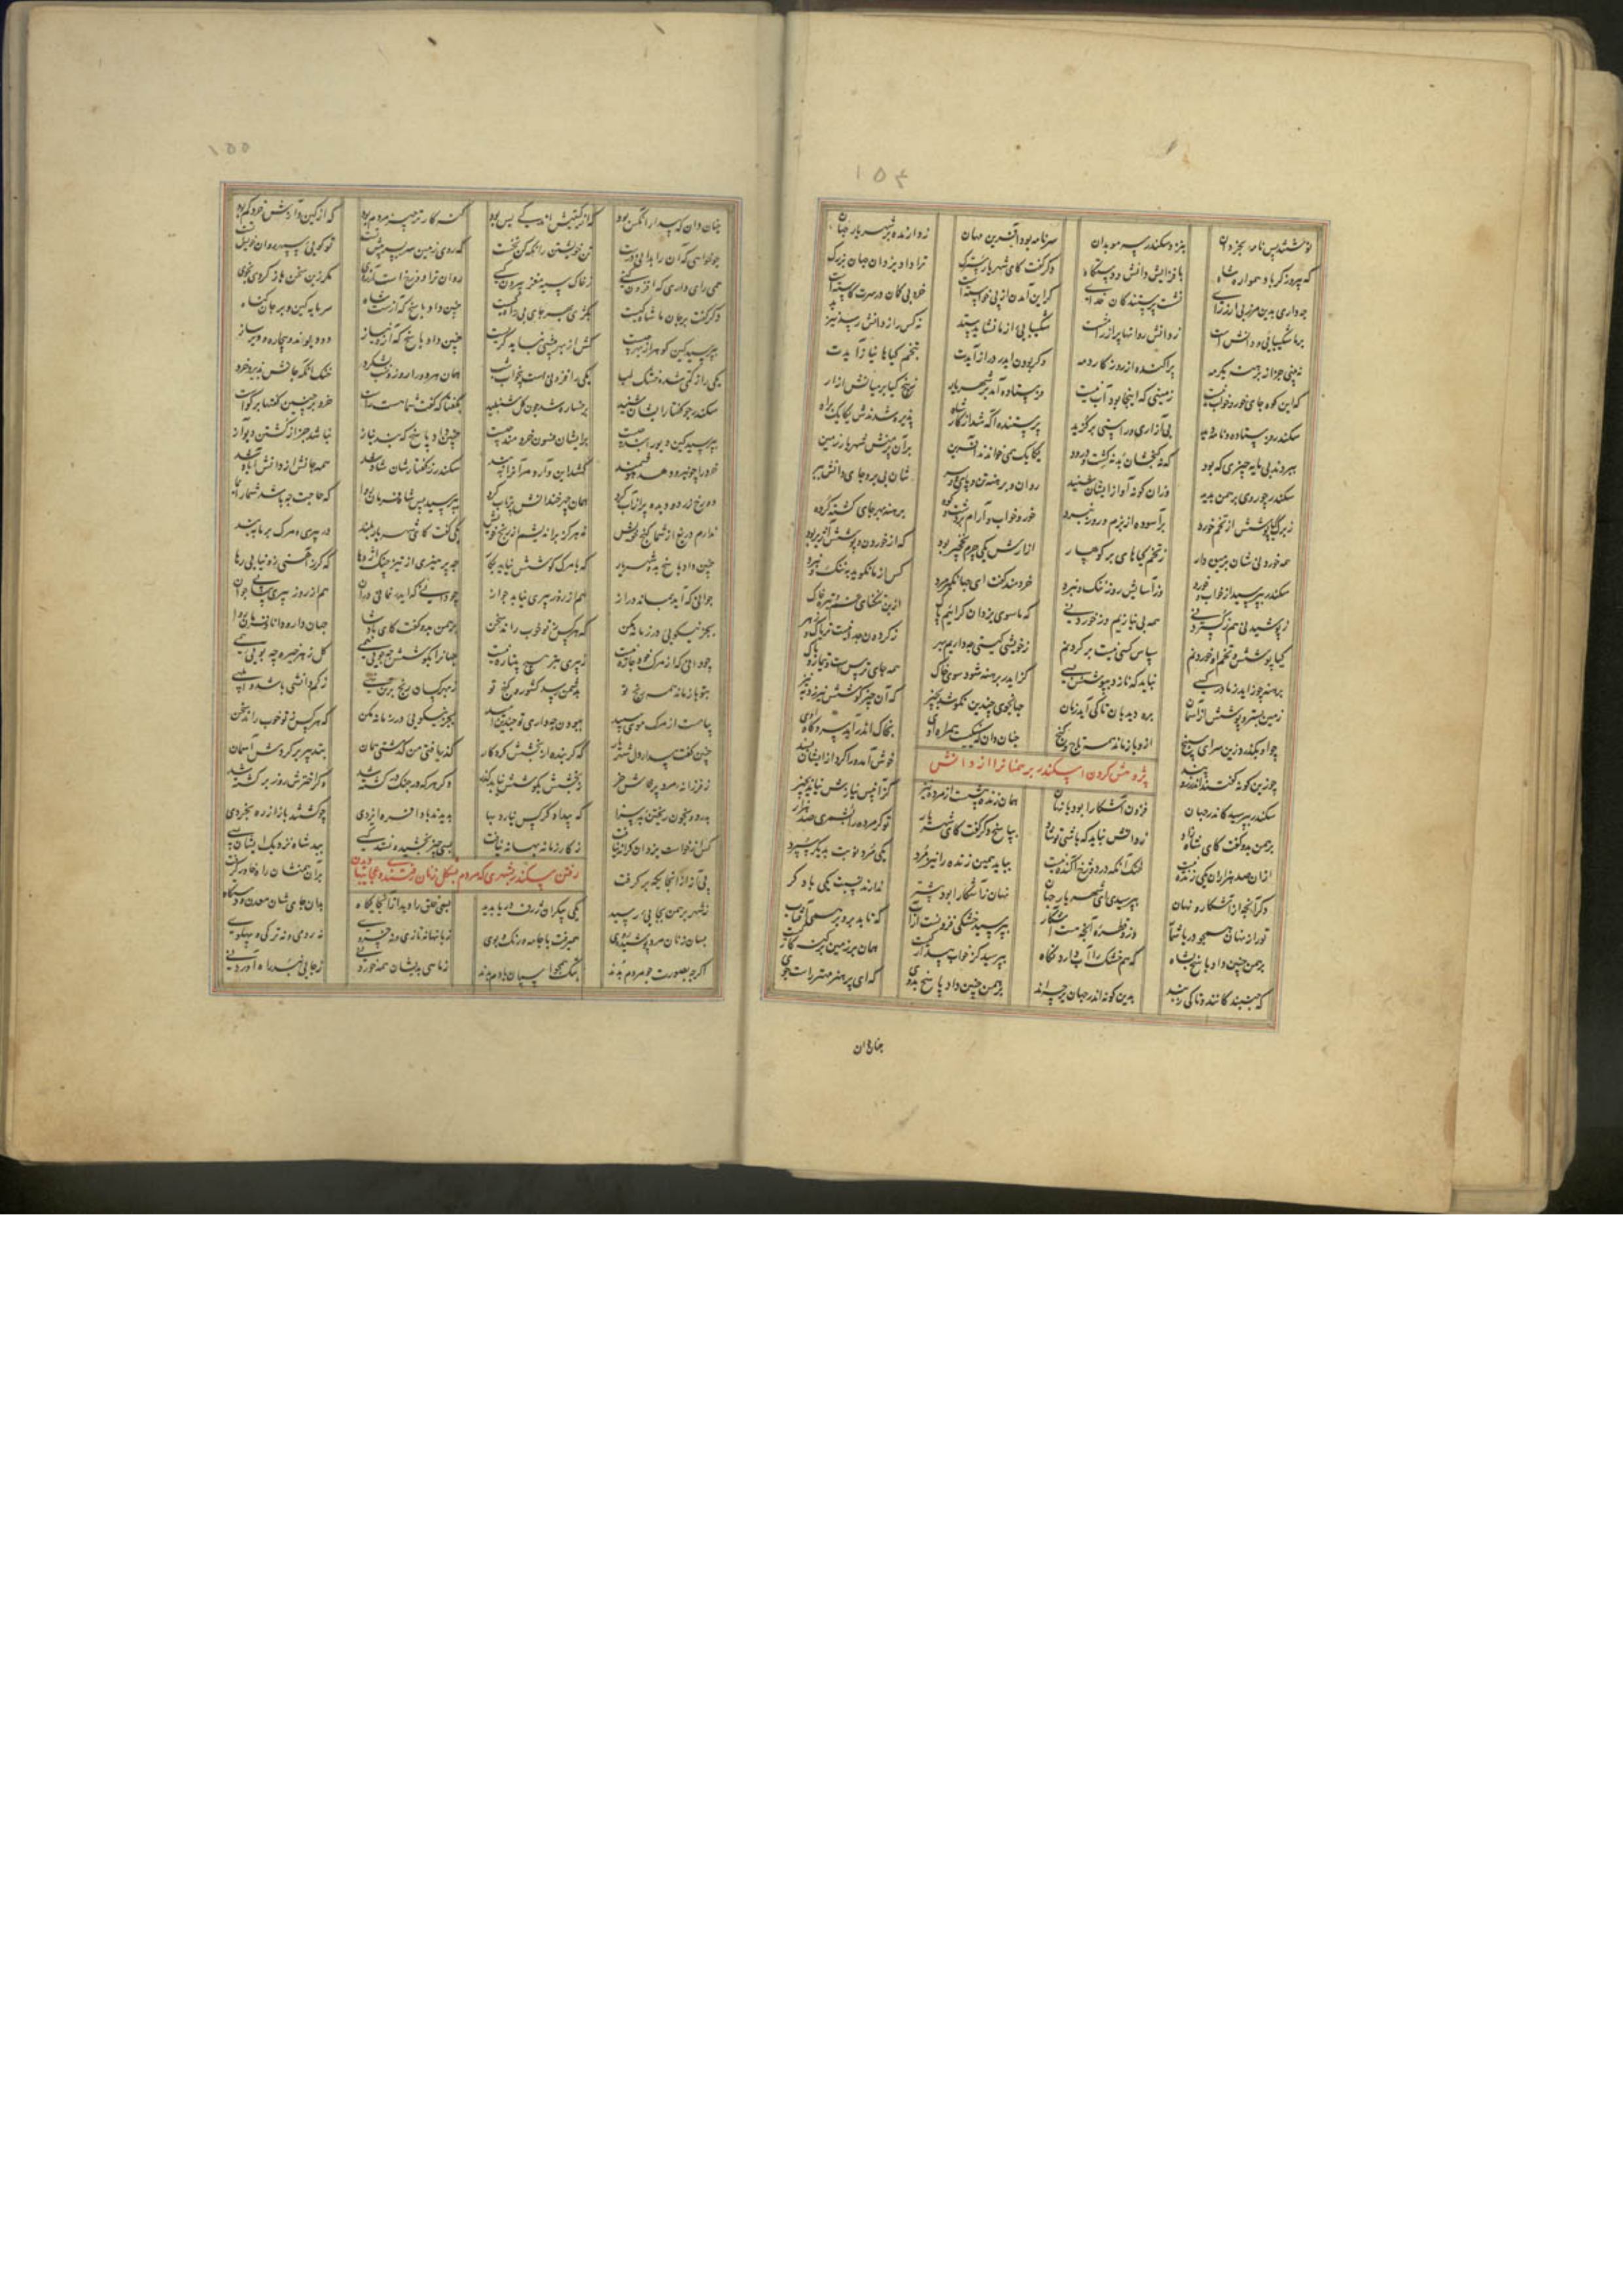 ۱۵۴
نوشتند پس نامه بخردان بنزد سکندر سر موبدان سر نامه بود آفرین مهان ز دارنده بر شهریار جهان
که پیروزگر باد همواره شاه بافزایش دانش و دستگاه دگر گفت کای شهریار سترگ ترا داد یزدان جهان بزرگ
چه داری بدین مرز بی ارز رای نشست پرستندگان خدای گر این آمدن از پی خواستست خرد بی گمان در سرت کاستست
برما شکیبایی و دانش است ز دانش روانها پر از رامشست شکیبایی از ما نشاید ستد نه کس را ز دانش رسد نیز
نه بینی جز از برهنه یکرمه پراکنده از روزگار دمه وگر بودن ایدر دراز آیدت بتخم گیاها نیاز آیدت
که این کوه جای خور و خواب نیست زمینی که اینجا بود آب نیست فرستاده آمد بر شهریار ز بیخ گیا بر میانش ازار
سکندر فرستاده و نامه دید بی آزاری و راستی برگزید پرستنده آگه شد از کار شاه پذیره شدندش یکایک براه
ببردند بی مایه چیزی که بود که نه گنجشان بد نه کشت و درود یکایک همی خواندند آفرین بران برمنش شهریار زمین
سکندر چو روی برهمن بدید وزان گونه آواز ایشان شنید روان و برهنه تن و پای و سر
ز برگ گیا پوشش از تخم خورد برآسوده از بزم و روز نبرد خور و خواب و آرام بر دشت و کوه برهنه بهر جای گشته گروه
همه خوردنی شان ز تخم گیاهای بر کوهسار ازارش یکی چرم نخجیر بود که از خوردن و پوشش آژیر بود
سکندر بپرسید از خواب و خورد وز آسایش روز ننگ و نبرد خردمند گفت ای جهانگیر مرد کس از ما نگوید بننگ و نبرد
ز پوشیدنی هم ز گستردنی همه بی نیازیم وز خوردنی که ما سوی یزدان گرائیم پاک ازین تنگنای تیره خاک
گیا پوشش و تخم او خوردنم سپاس کسی نیست بر گردنم ز خویشی گیتی نداریم بهر ز گردون جدا نیست تریاک و زهر
برهنه چو زاید ز مادر کسی نباید که نازد بپوشش بسی گر ایدر برهنه شود سوی خاک همه جای ترس است و تیمار و باک
زمین بستر و پوشش از آسمان بره دیدبان تا کی آید زمان جهانجوی چندین نکوشد بچیز که آن چیز کوشش نیرزد بنیز
چو او بگذرد زین سرای سپنج ازو بازماند همه تاج و گنج چنان دان که نیکیست همراه اوی بخاک اندر آید سر و گاه اوی
پژوهش کردن اسکندر برهمنانرا از دانش
چو زین گونه گفتند اندرز و پند خوش آمد
سکندر بپرسید کاندر جهان فزون آشکارا بود یا نهان همان زنده بیشست از مرده نیز کزان پس نیازش نیاید بچیز
برهمن بدو گفت کای شاه بپاسخ دگر گفت کای شهریار تو گر مرده را بشمری صد هزار
ازان صد هزاران یکی زنده نیست خنک آنکه در دوزخ افکنده نیست بباید همین زنده را نیز مرد یکی مرد نوبت بدیگر سپرد
دگر آنچه از آشکار و نهان بپرسیدی ای شهریار جهان نهان ز آشکارا بود بیشتر
تو راز نهان همچو دریا شمار وزو قطره آنچه هست آشکار بپرسید خشکی فزونست ار آب که تابد برو بر همی آفتاب
برهمن چنین داد پاسخ بشاه که هم خشک را آب دارد نگاه بپرسید کز خواب بیدار کیست همان بر زمین
که جنبند کانند و تا کی زیند بدین گونه اندر جهان بر چه اند برهمن چنین داد پاسخ بدوی که ای پرهنر مهتر راست جوی
چنان دان
۱۵۵
چنان دان که بیدار آنکس بود که از گیتیش اندکی بس بود گنه کارتر چیز مردم بود که از کین و آزش خرد گم بود
چو خواهی که آن را بدانی درست تن خویشتن را نگه کن نخست که روی زمین سر بسر پیش تست تو گویی سپهر روان خویش تست
همی رای داری که افزون کنی ز خاک سیه مغز بیرون کنی روان ترا دوزخ است آرزوی مگر زین سخن باز گردی بخوی
دگر گفت بر جان ما شاه کیست بکژی بهر جای بیراه کیست چنین داد پاسخ که آزست شاه سر مایه کین و بر جان گناه
بپرسید کین گوهر آز چیست کش از بهر بیشی نباید گریست چنین داد پاسخ که آز و نیاز دو دیواند بیچاره و دیر ساز
یکی را ز کمی شده خشک لب یکی را فزونی است بیخواب شب همان هر دو را روز بشکرد خنک آنکه جانش پذیرد خرد
سکندر چو گفتار ایشان شنید برخساره شد چون گل شنبلید بگفتا که گفت شما هست راست خرد بر چنین گفتها بر گواست
بپرسید کین دیو چیست برایشان فسون خردمند چیست چنین داد پاسخ که بند نیاز نباشد جز از کشتن دیو آز
خرد را چو نیرو دهد هوشمند سکندر ز گفتارشان شاد شد همه جانش از دانش آباد شد
دو رخ زرد و دو دیده پر آب کرد همان چهر خندانش پرتاب کرد بپرسید پس شاه فرمان روا که حاجت چه باشد شما را بما
ندارم دریغ از شما گنج خویش نه هرگز براندیشم از رنج خویش یکی گفت کای شهریار بلند در پیری و مرگ بر ما ببند
چنین داد پاسخ بدو شهریار که با مرگ کوشش نیاید بکار چه پرهیزی از تیز چنگ اژدها که گر ز آهنی زو نیابی رها
جوانی که آید بماند دراز هم از روز پیری نیابد جواز
بجز نیکویی در زمانه مکن که هر کس ز تو خوب راند سخن برهمن بدو گفت کای پادشا جهاندار و دانا و فرمان روا
چو دانی که از مرگ خود چاره نیست ز پیری بتر هیچ پتیاره نیست جهانرا بکوشش چه جویی همی گل زهر خیره چه بویی همی
ز تو بازماند همین رنج تو بدشمن رسد کشور و گنج تو ز بهر کسان رنج بر تن نهی ز کم دانشی باشد و ابلهی
پیامست از مرگ موی سپید ببودن چه داری تو چندین امید بجز نیکویی در زمانه مکن که هر کس ز تو خوب راند سخن
چنین گفت بیدار دل شهریار که گر بنده از بخشش کردگار گذر یافتی من گذشتی همان بتدبیر بر گردش آسمان
ز فرزانه و مرد پرخاش خر ز بخشش بکوشش نیابد گذر دگر هر که در جنگ من کشته شد کرا اخترش روز برگشته شد
بدرد و بخون ریختن بد سزا که بیدادگر کس نیابد رها بدیدند بادافره ایزدی چو گشتند باز از ره بخردی
کس از خواست یزدان کرانه نیافت ز کار زمانه بهانه نیافت بسی چیز بخشید و نستد کسی نبد شاه نزدیک ایشان بسی
رفتن سکندر بشهری که مردم بشکل زنان رفتندی و عجایبها دیدن
بی آزار از آنجا بگه برگرفت بران همنشان راه خاور گرفت
ز شهر برهمن بجایی رسید یکی بیکران ژرف دریا بدید بسی خلق را دید آنجایگاه بدان جای شان معدن و دستگاه
بسان زنان مرد پوشیده روی همیرفت با جامه و رنگ و بوی زبانها نه تازی و نه خسروی نه رومی و نه ترکی و پهلوی
اگرچه بصورت چو مردم بدند بتک همچو اسپان بدند ز ماهی بدیشان همه خوردنی ز جایی نبد راه آوردنی